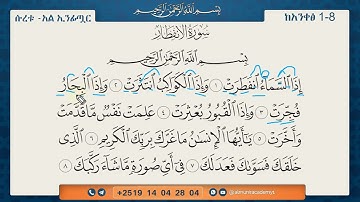 بِسْمِ اللَّهِ الرَّحْمَٰنِ الرَّحِيمِ
ሱረቱ -አል ኢንፊጧር
ከአንቀፅ 1-8
سُورَةُ الِانفِطَارِ
بِسْمِ اللَّهِ الرَّحْمَٰنِ الرَّحِيمِ
إِذَا السَّمَاءُ انفَطَرَتْ ١ وَإِذَا الْكَوَاكِبُ انتَثَرَتْ ٢ وَإِذَا الْبِحَارُ
فُجِّرَتْ ٣ وَإِذَا الْقُبُورُ بُعْثِرَتْ ٤ عَلِمَتْ نَفْسٌ مَّا قَدَّمَتْ
وَأَخَّرَتْ ٥ يَا أَيُّهَا الْإِنسَانُ مَا غَرَّكَ بِرَبِّكَ الْكَرِيمِ ٦ الَّذِي
خَلَقَكَ فَسَوَّاكَ فَعَدَلَكَ ٧ فِي أَيِّ صُورَةٍ مَّا شَاءَ رَكَّبَكَ ٨
+2519 14 04 28 04